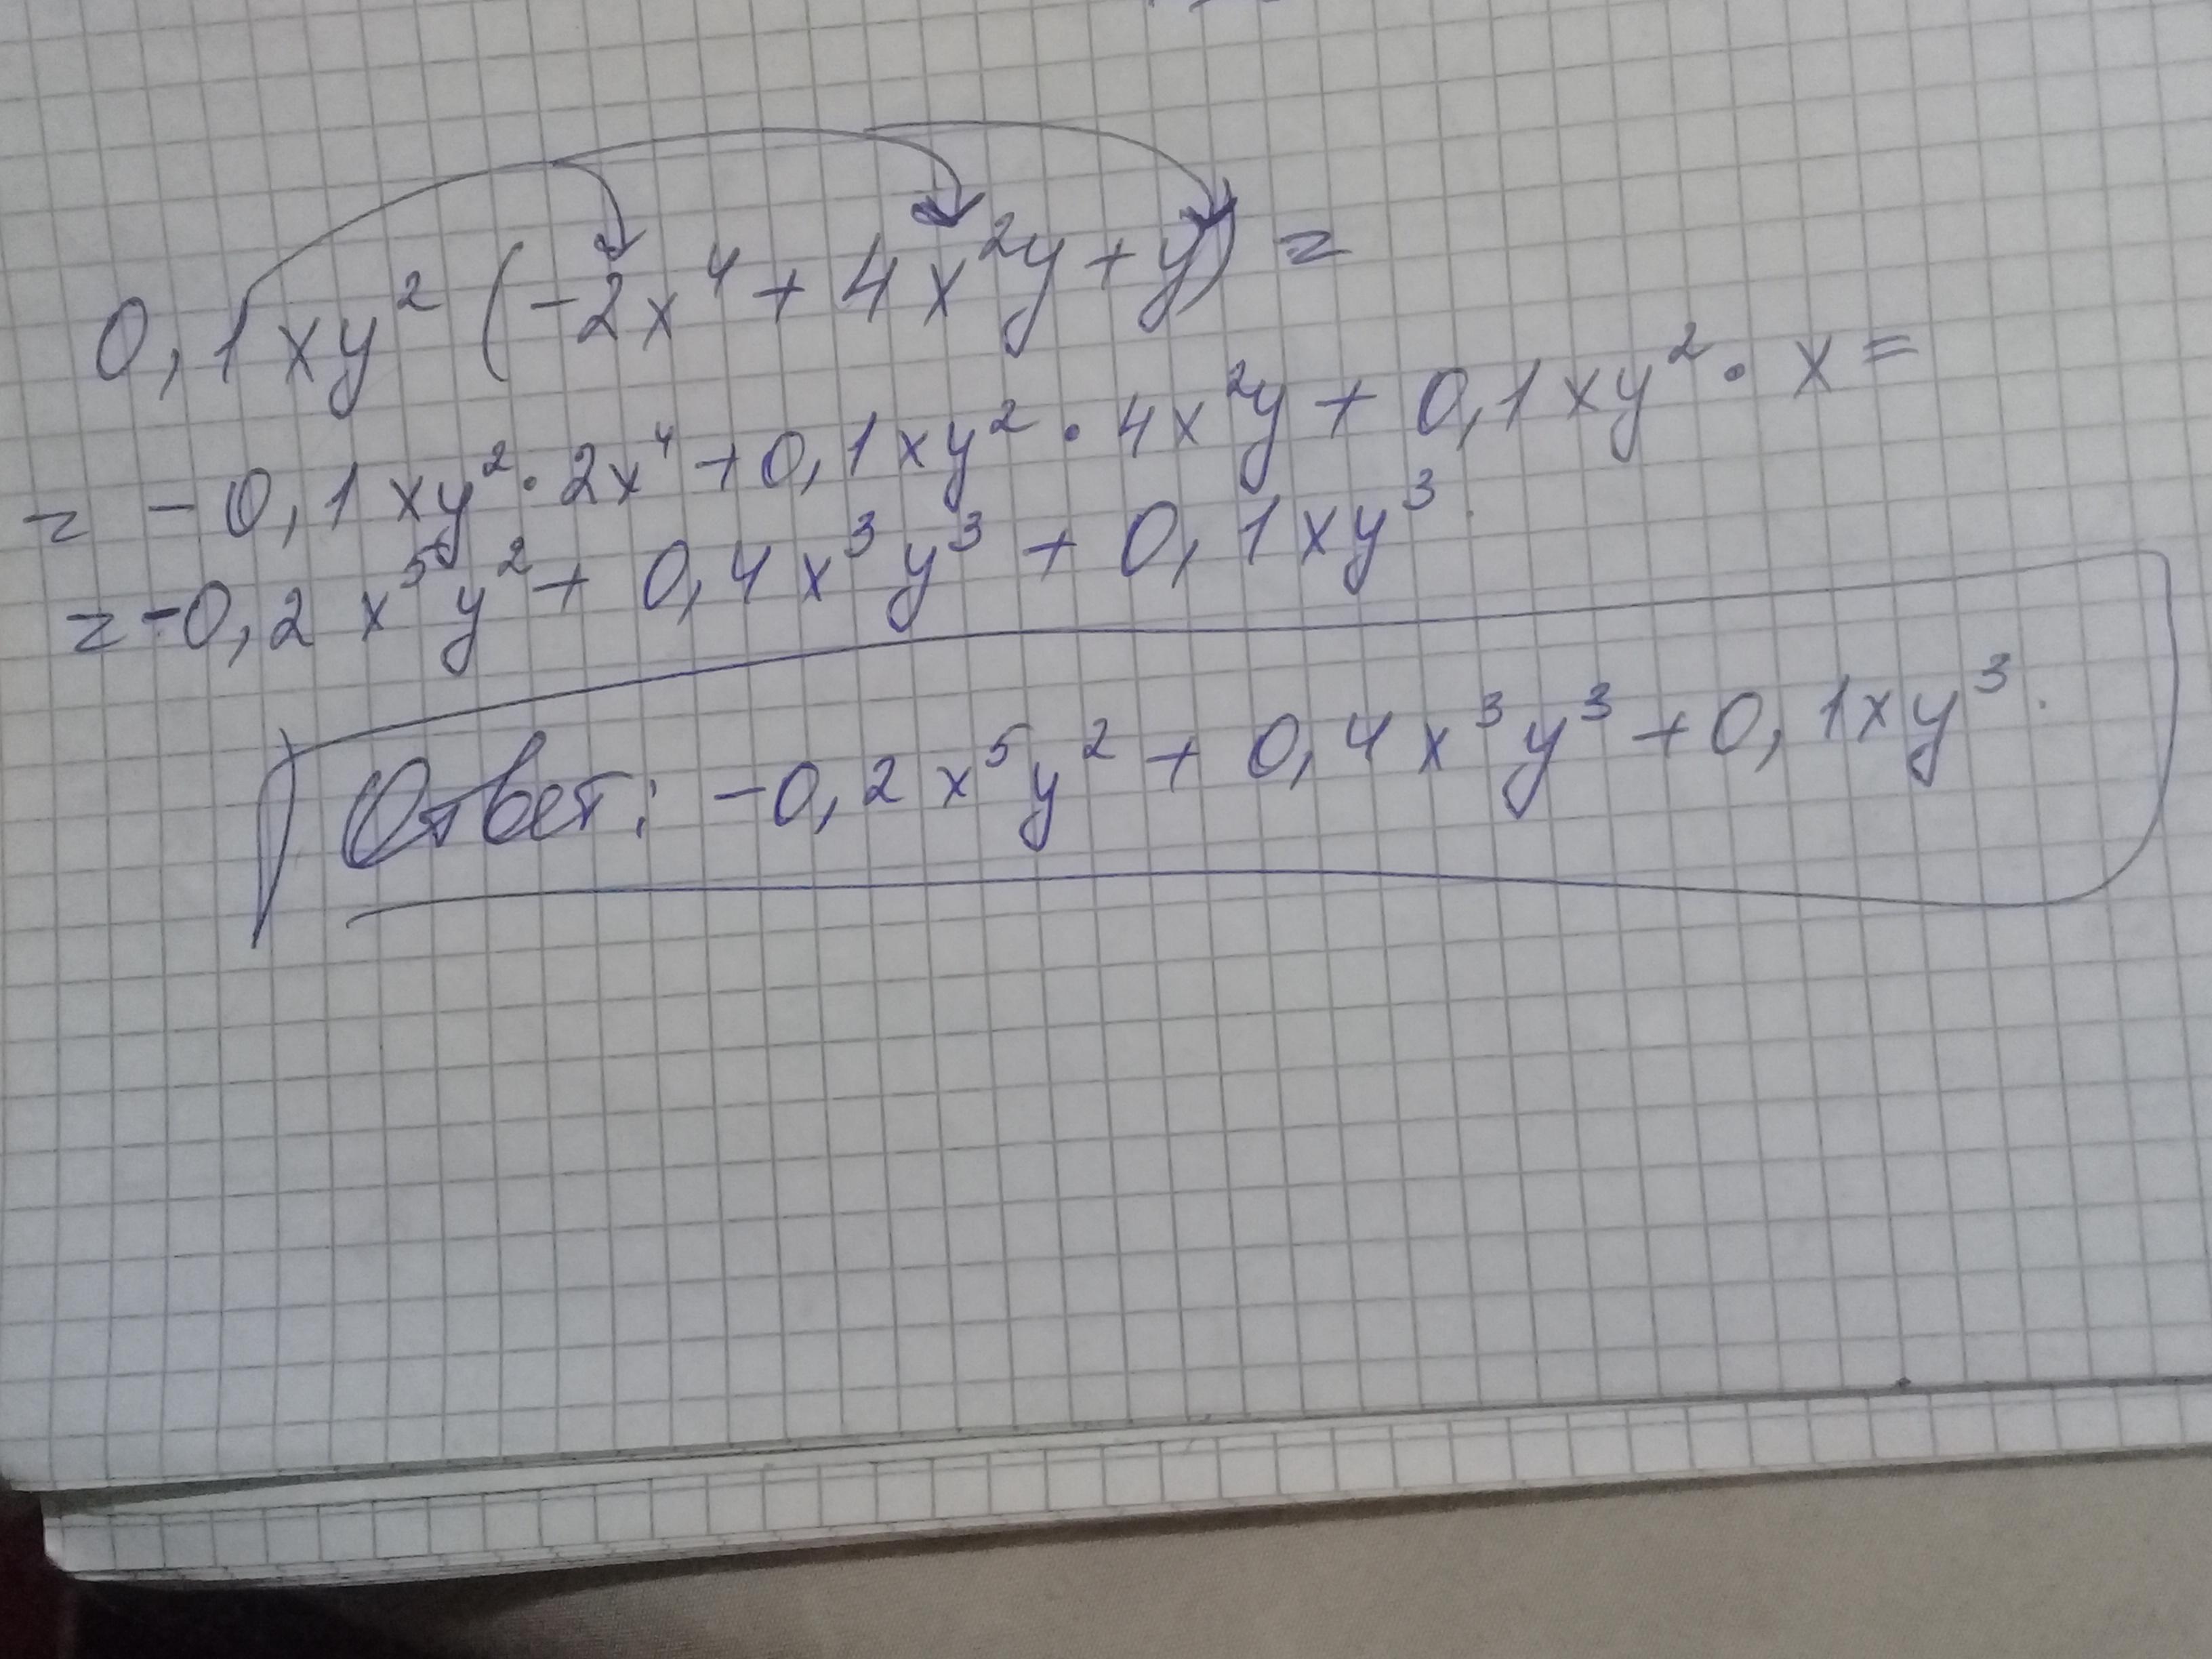 0,1xy² (-2x⁴ + 4x²y + y) =
= - 0,1xy² · 2x⁴ + 0,1xy² · 4x²y + 0,1xy² · x =
= -0,2 x⁵y² + 0,4x³y³ + 0,1xy³.
Ответ: -0,2x⁵y² + 0,4x³y³ + 0,1xy³.